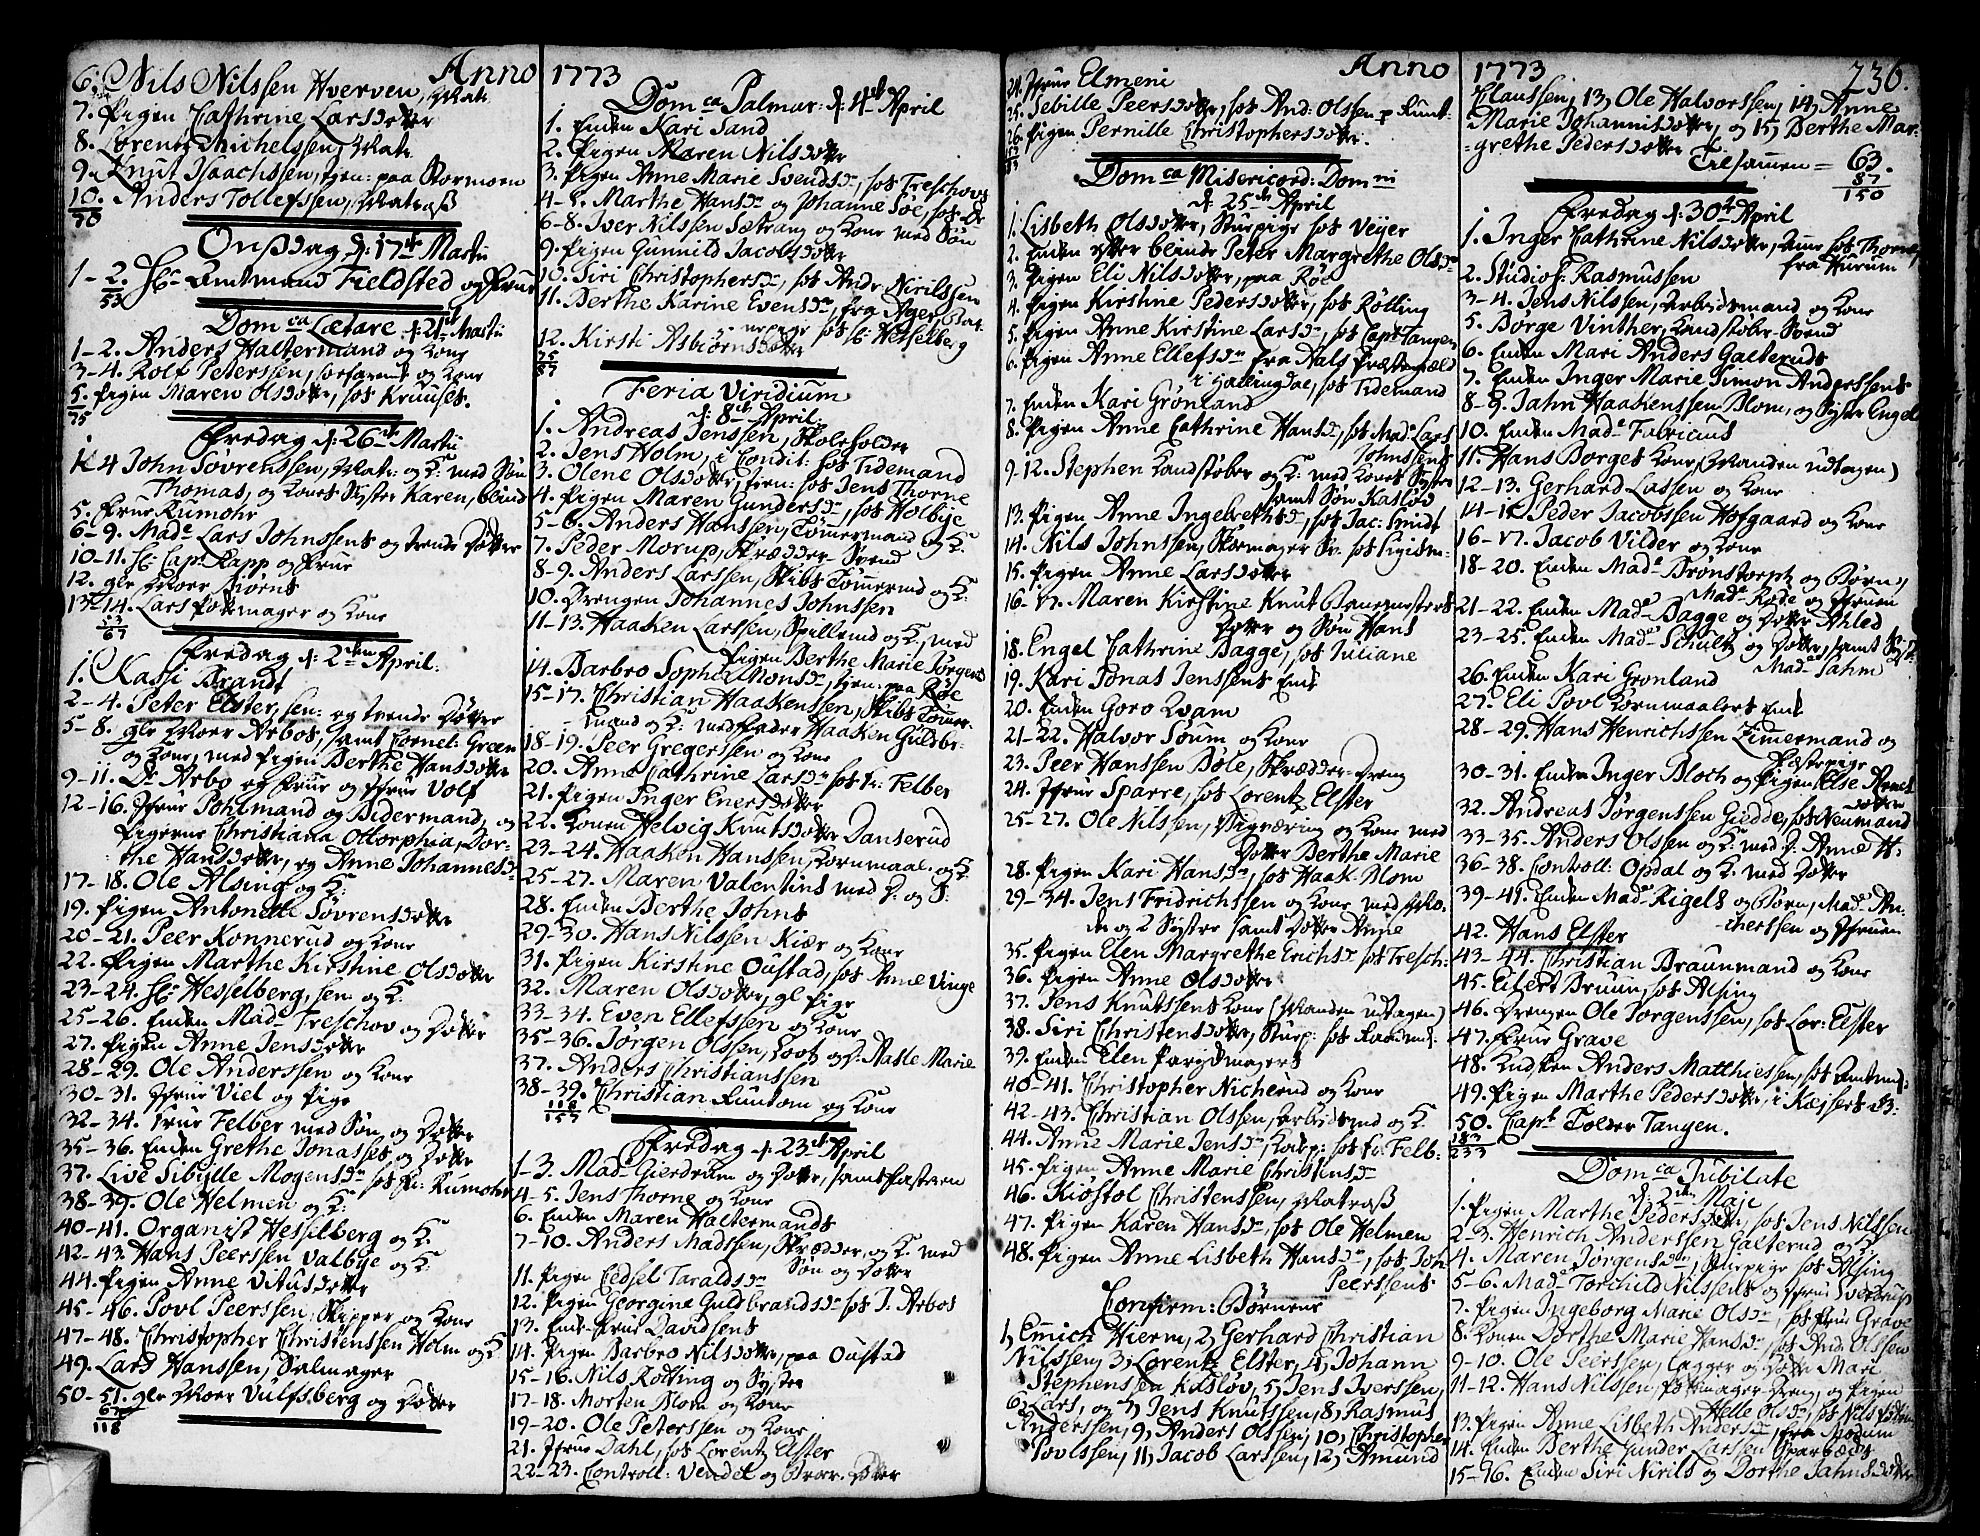 Anno 1773
6. Nils Nilssen Hverven, Matr:
7. Pigen Cathrine Larsdotter
8. Lorentz Michelssen, Matr:
9. Knut Isaachssen, tien: paa Stormoen
10. Anders Tollefssen, Matroß
70
Onsdag d: 17de Martii
1-2. Hr Amtmand Fieldsted og Frue
53
Dom ca Lætare d: 21de Martii
1-2. Anders Haltermand og Kone
3-4. Rolf Peterssen, og Kone
5. Pigen Maren Olsdotter, hos Kruuses.
75
Fredag d: 26de Martii
1-4 John Søvrenssen, Matr: og K: med Søn
Thomas, og Kones Syster Karen, blind
5. Frue Rumohr
6-9. Made Lars Johnssens og trende Døttre
10-11. Hr Capt Rapp og Frue
12. gle Moer Biørns
13-14. Lars Pottemager og Kone
53
67
Fredag d: 2den April:
1. Kassi Brandt
2-4. Peter Elster, sen: og tvende Døttre
5-8. gle Moer Arbos, samt Cornel: Green
og Kone, med Pigen Berthe Hansdotter
9-11. Dr Arbo og Frue og Jfrue Volf
12-16. Jfrue Pohlmand og Bidermand, og
Pigerne Christiana Olorphia, Dor-
the Hansdotter, og Anne Johannesdr
17-18. Ole Alsing og K:
19. Pigen Antonette Søvrensdotter
20-21. Peer Konnerud og Kone
22. Pigen Marthe Kirstine Olsdotter
23-24. Hr Hesselberg, sen: og K:
25-26. Enken Made Treschov og Dotter
27. Pigen Anne Jensdotter
28-29. Ole Anderssen og Kone
30-31. Jfrue Viel og Pige
32-34. Frue Felber med Søn og Dotter
35-36. Enken Grethe Jonasses og Dotter
37. Live Sibylle Mogensdr hos Fr: Rumohr
38-39. Ole Helmen og K:
40-41. Organist Hesselberg og K:
42-43. Hans Peerssen Valbye og K:
44. Pigen Anne Vitusdotter
45-46. Povl Peerssen, Skipper og Kone
47-48. Christopher Christenssen Holm og K:
49. Lars Hanssen, Salmager
50-51. gle Moer Vulfsberg og Dotter
67
118
Dom ca Palmar: d: 4de April
1. Enken Kari Sand
2. Pigen Maren Nilsdotter
3. Pigen Anne Marie Svendsdr, hos Treschovs
4-5. Marthe Hansdr og Johanne Søe, hos Dr
6-8. Iver Nilssen Sætrang og Kone med Søn
9. Pigen Gunnild Jacobsdotter
10. Siri Christophersdr, hos Andr: Nirilssen
11. Berthe Karine Evensdr, fra Ager
hos Hr Hesselberg
12. Kirsti Asbiørnsdotter
75
87
Feria Viridium
d: 8de April
1. Andreas Jenssen, Skoleholder
2. Jens Holm, i Condit: hos Tidemand
3. Olene Olsdotter, tien: hos Jens Thorne
4. Pigen Maren Gundersdr, hos Holbye
5-6. Anders Hanssen, Tømmermand og K:
7. Peder Morup, Skrædder-Svend
8-9. Anders Larssen, Skibs Tømmermd og K:
10. Drengen Johannes Johnssen
11-13. Haaken Larssen, Spillemd og K:, med
Pigen Berthe Marie Jørgensdr
14. Barbro Sophie Monsdr, tien: paa Røe
15-17. Christian Haakenssen, Skibs Tømmer-
mand og K: med Fader Haaken Guldbr:
18-19. Peer Gregerssen og Kone
20. Anne Cathrine Larsdr hos Fr: Felber
21. Pigen Inger Enersdotter
22. Konen Helvig Knutsdotter Danserud
23-24. Haaken Hanssen, Kornmaal. og K:
25-27. Maren Valentins med D: og S:
28. Enken Berthe Johns
29-30. Hans Nilssen Kiær og Kone
31. Pigen Kirstine Oustad, hos Anne Vinge
32. Maren Olsdotter, gl Pige
33-34. Even Ellefssen og Kone
35-36. Jørgen Olssen, Loots og D: Aasle Marie
37. Anders Christianssen
38-39. Christian Funtom og Kone
118
157
Fredag d: 23de April
1-3. Made Gierdrum og Dotter, samt Fasteren
4-5. Jens Thorne og Kone
6. Enken Maren Haltermands
7-10. Anders Madssen, Skrædder, og K: med
Søn og Dotter
11. Pigen Cedsel Taraldsdr
12. Pigen Georgine Guldbrandsdr hos J: Arbos
13. Enke-Frue Davidsens
14. Pigen Barbro Nilsdotter, paa Oustad
15-16. Nils Rotting og Syster
17-18. Morten Blom og Kone
19-20. Ole Peterssen og Kone
21. Jfrue Dahl, hos Lorentz Elster
22-23. Controll: Vendel og Dotter
Anno 1773
236.
24. Jfrue Elmeni
25. Sebille Peersdotter, hos And: Olssen
26. Pigen Pernille Christophersdotter.
Dom ca Misericord: Domni
d: 25de April
1. Lisbeth Olsdotter, Stuepige hos Veyer
2. Enken blinde Peter Margrethe Olsdr
3. Pigen Eli Nilsdotter, paa Røe
4. Pigen Kirstine Pedersdotter, hos Røtting
5. Pigen Anne Kirstine Larsdr, hos Capt Tangen
6. Pigen Anne Ellefsdr fra Hals Præstegield
i Hallingdal, hos Tidemand
7. Enken Kari Grønland
8. Pigen Anne Cathrine Hansdr, hos Made Lars
Johnssens
9-12. Stephen Kandstøber og K: med Kones Syster
samt Søn Kasløv
13. Pigen Anne Ingebrethsdr, hos Jac: Smidt
14. Nils Johnssen, Skomager Sv. hos Sigism:
15. Pigen Anne Larsdotter
16-17. Maren Kirstine Knut Baneemesters
Dotter og Søn Hans
18. Engel Cathrine Bagge, hos Juliane
19. Kari Jonas Jenssens Enke
20. Enken Goro Qvam
21-22. Halvor Soum og Kone
23. Peer Hanssen Bøle, Skrædder-Dreng
24. Jfrue Sparre, hos Lorentz Elster
25-27. Ole Nilssen, Vigværing og Kone med
Dotter Berthe Marie
28. Pigen Kari Hansdr, hos Haak: Blom
29-34. Jens Fridrichssen og Kone med
og 2 Syster samt Dotter Anne
35. Pigen Elen Margrethe Erichsdr hos Tresch:
36. Pigen Anne Olsdotter
37. Jens Knutssens Kone (Manden udtagen)
38. Siri Christensdotter, Stuep: hos
39. Enken Elen Parykmagers
40-41. Christopher Nicherud og Kone
42-43. Christian Olssen, arbeidsmd og K:
44. Anne Marie Jensdr, Kokp: hos Fr: Felb:
45. Pigen Anne Marie Christensdr
46. Kiøstol Christenssen, Matroß
47. Pigen Karen Hansdr hos Ole Helmen
48. Pigen Anne Lisbeth Hansdr, hos Joh
Peerssens
Confirm: Børnene
1, Emich Hierm, 2, Gerhard Christian
Nilssen, 3, Lorentz Elster, 4, Johann
Stephenssen Kasløv, 5, Jens Iverssen,
6, Lars, og 7, Jens Knutssen, 8, Rasmus
Anderssen, 9, Anders Olssen, 10, Christopher
Povlssen, 11, Jacob Larssen, 12, Amund
Claussen, 13, Ole Halvorssen, 14, Anne
Marie Johannisdotter, og 15, Berthe Mar-
grethe Pedersdotter
Tilsammen = 63.
87
150
Fredag d: 30te April
1. Inger Cathrine Nilsdotter, hos Thornes,
fra Hurum
2. Studios: Rasmussen
3-4. Jens Nilssen, Arbeidsmand og Kone
5. Børge Vinther, Kandstøber-Svend
6. Enken Mari Anders Galteruds
7. Enken Inger Marie Simon Anderssens
8-9. Jahn Haakenssen Blom, og Syster Engel
10. Enken Made Fabricius
11. Hans Borges Kone, (Manden udtagen)
12-13. Gerhard Lassen og Kone
14-15. Peder Jacobssen Hofgaard og Kone
16-17. Jacob Vilder og Kone
18-20. Enken Made Brønstorph og Børn,
Made Rode og Jfruen
21-22. Enken Made Bagge og Dotter Ahled
23-25. Enken Made Schultz og Dotter, samt
Made Sahm
26. Enken Kari Gronland
27. Eli Povl Kornmaalers Enke
28-29. Hans Henrichssen Zimmermand og
Fæstepige
30-31. Enken Inger Bloch og Pigen Else
dotter
32. Andreas Jørgenssen Giedde, hos Neumand
33-35. Anders Olssen og K: med D: Anne H:
36-38. Controll: Opdal og K: med Dotter
39-41. Enken Made Rigels og Børn, Made An-
cherssen og Jfruen
42. Hans Elster
43-44. Christian Braunmand og Kone
45. Eilert Bruun, hos Alsing
46. Drengen Ole Jorgenssen, hos Lor: Elster
47. Frue Grave
48. Kudsken Anders Matthiessen, hos Amtmd:
49. Pigen Marthe Pedersdotter, i Kejsers B:
50. Capt Tolder Tangen.
183
233
Dom ca Jubilate
d: 2den Maje
1. Pigen Marthe Pedersdotter, hos Jens Nilssen
2-3. Henrich Anderssen Galterud og K:
4. Maren Jørgensdr, Stuepige hos Alsing
5-6. Made Torchild Nilssens og Jfrue Sverdrup
7. Pigen Ingeborg Marie Olsdr, hos Frue Grave
8. Konen Dorthe Marie Hansdr, hos And: Olssen
9-10. Ole Peerssen, Lægger og Dotter Mari
11-12. Hans Nilssen, Pottemager-Dreng, og Pigen
Helle Olsdr, hos Nils
13. Pigen Anne Lisbeth Andersdr, fra Modum
14. Enken Berthe Gunder Larssen Sparbæch
15-16. Enken Siri Nirils og Dorthe Jahnsdotter